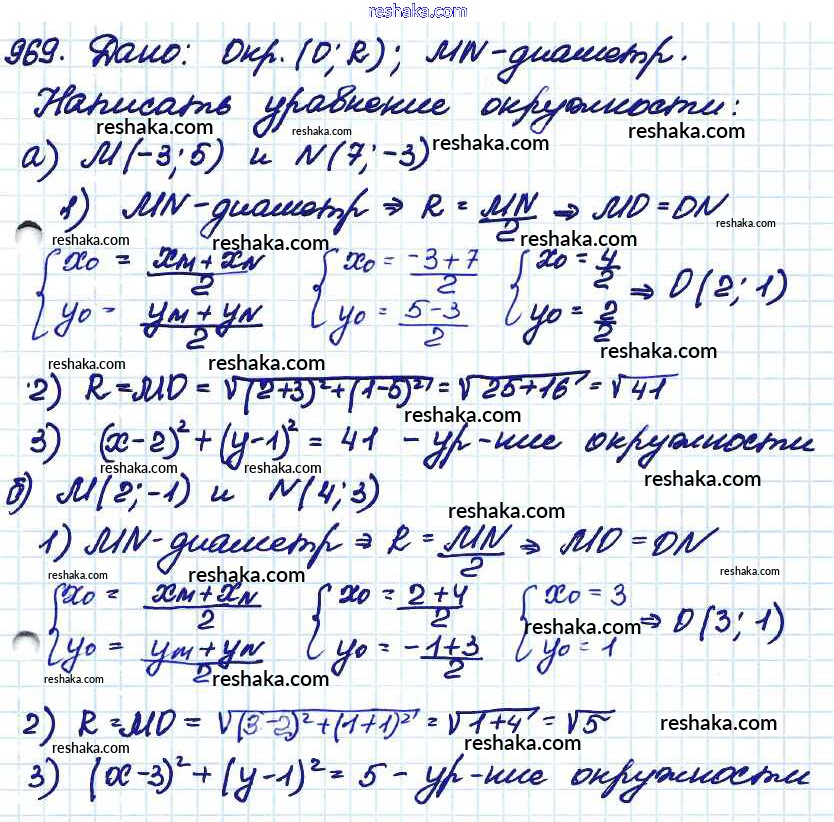 reshaka.com
969. Дано: Окр. (O; R); MN-диаметр.
Написать уравнение окружности:
reshaka.com reshaka.com reshaka.com reshaka.com
а) M(-3; 5) и N(7; -3)
1) MN-диаметр ⇒ R = MN/2 ⇒ MO = ON
reshaka.com reshaka.com reshaka.com reshaka.com
{ x₀ = (xM + xN)/2 { x₀ = (-3+7)/2 { x₀ = 4/2
{ y₀ = (yM + yN)/2 { y₀ = (5-3)/2 { y₀ = 2/2 ⇒ O(2; 1)
reshaka.com reshaka.com reshaka.com reshaka.com
2) R = MO = √((2+3)²+(1-5)²) = √(25+16) = √41
reshaka.com
3) (x-2)² + (y-1)² = 41 - ур-ние окружности
reshaka.com reshaka.com reshaka.com
б) M(2; -1) и N(4; 3)
reshaka.com
1) MN-диаметр ⇒ R = MN/2 ⇒ MO = ON
reshaka.com reshaka.com reshaka.com
{ x₀ = (xM + xN)/2 { x₀ = (2+4)/2 { x₀ = 3
{ y₀ = (yM + yN)/2 { y₀ = (-1+3)/2 { y₀ = 1 ⇒ O(3; 1)
reshaka.com
reshaka.com reshaka.com
2) R = MO = √((3-2)²+(1+1)²) = √(1+4) = √5
reshaka.com reshaka.com reshaka.com reshaka.com
3) (x-3)² + (y-1)² = 5 - ур-ние окружности